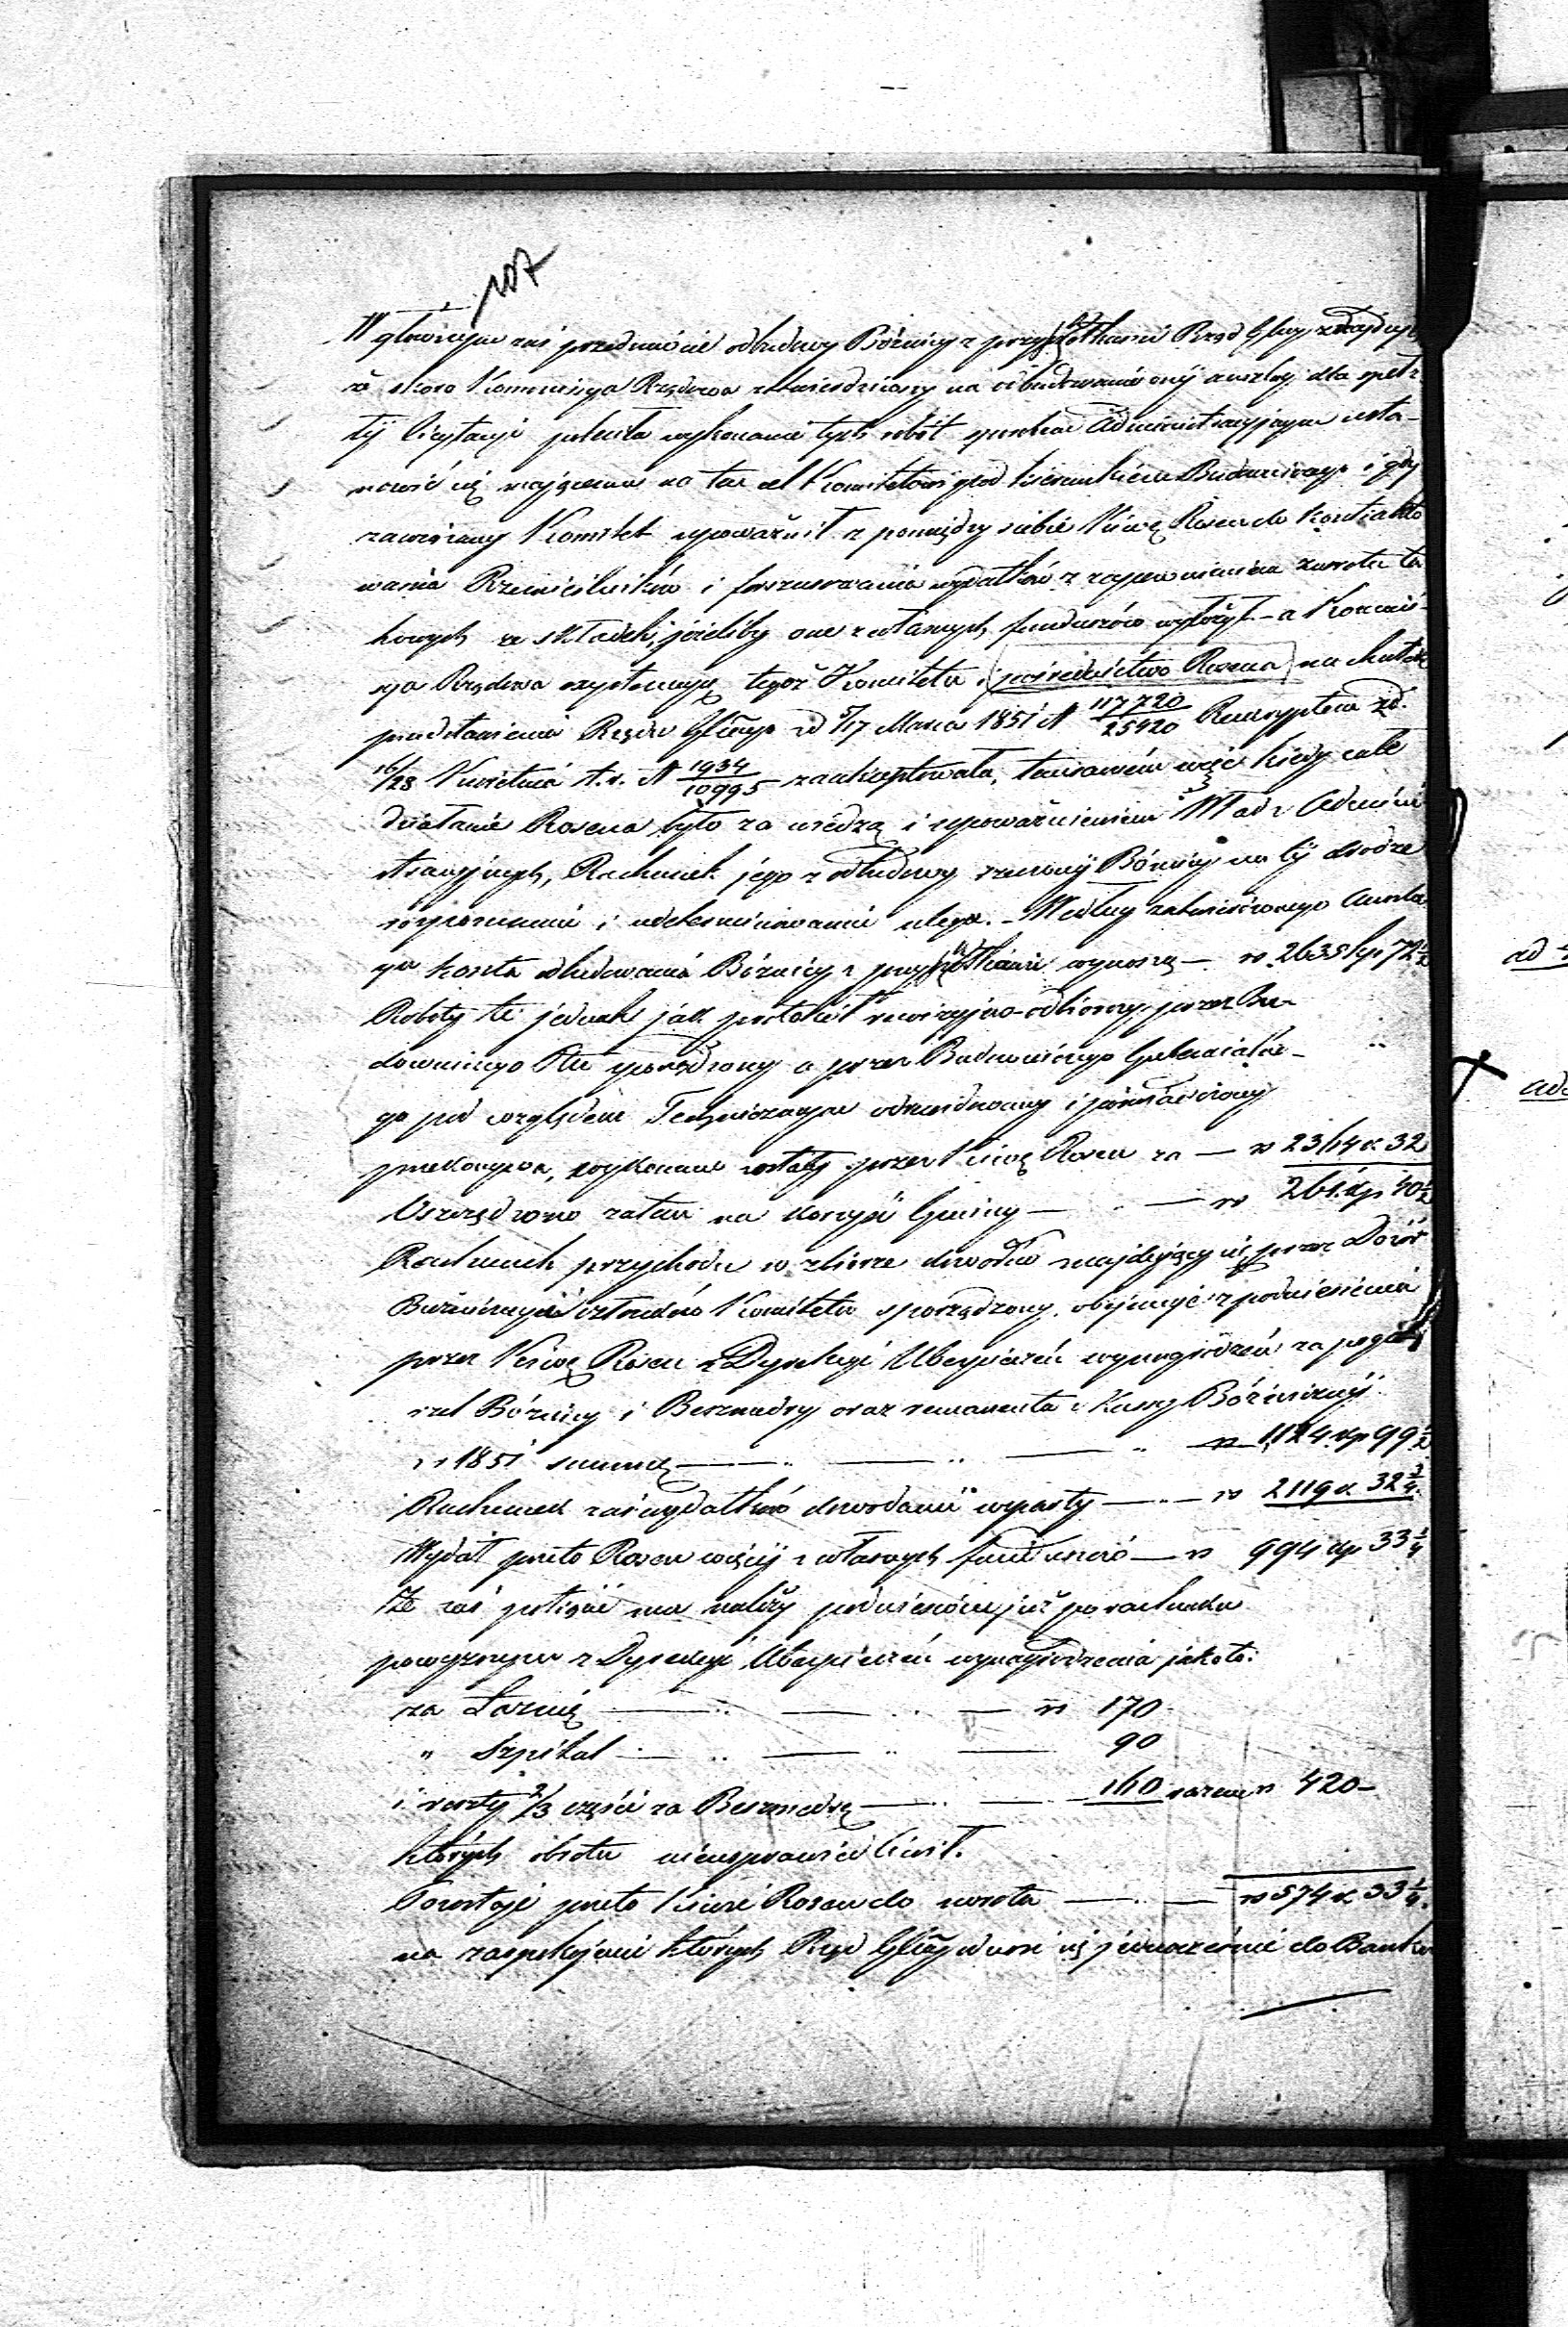 107
W głównym zaś przedmiocie odbudowy Bóżnicy z przysionkami Rząd Głny znajduje
że skoro Kommissya Rządowa zatwierdziwszy na odbudowanie onej anszlag dla spełz
łej licytacyi poleciła wykonanie tych robót sposobem Administracyjnym usta-
nowić się mającemu na ten cel Komitetowi pod kierunkiem Budowniczego i gdy
zawiązany Komitet upoważnił z pomiędzy siebie Kiwę Rosen do kontrakto
wania Rzemieślników i forszusowania wydatków z zapewnieniem zwrotu ta
kowych ze składek, jeżeliby one z własnych funduszów wyłożył – a Kommis-
sya Rządowa exystencyę tegoż Komitetu i pośrednictwo Rosena na skutek
przedstawienia Rządu Głnego z d 5/17 Marca 1851 N 117720/25420 Reskryptem z d.
16/28 Kwietnia t.r. N 1934/10995 zaakceptowała, tem samem więc kiedy całe
działanie Rosena było za wiedzą i upoważnieniem Władz Admini
stracyjnych, Rachunek jego z odbudowy rzeczonej Bóżnicy na tej drodze
rozpoznaniu i zdeterminowaniu ulega. – Według zatwierdzonego anszla
gu koszta odbudowania Bóżnicy z przysionkami wynoszą – rs 2635 kp 72 1/2
Roboty te jednak jak protokół rewizyjno-odbiorczy przez Bu-
downiczego Ptu sporządzony a przez Budowniczego Gubernialne-
go pod względem Technicznym zrewidowany i
przekonywa, wykonane zostały przez Kiwę Rosen za — rs 2364 k. 32
Oszczędzono zatem na korzyść Gminy — — rs 261 kp 40 1/2
Rachunek przychodu w zbiorze dowodów znajdujący się przez Dozór
Bóżniczy i członków Komitetu sporządzony obejmuje z podniesienia
przez Kiwę Rosen z Dyrekcyi Ubezpieczeń wynagrodzeń za pogo-
rzel Bóżnicy i Besmedry oraz remanentu z Kassy Bóżniczej
z r 1851 summę — — — rs 1124 kp 99 1/2
Rachunek zaś wydatków dowodami wsparty — — rs 2119 k. 32 3/4
Wydał przeto Rosen więcej z własnych funduszów — rs 994 kp 33 1/4
Że zaś potrącić mu należy podniesione już po rachunku
powyższym z Dyrekcyi Ubezpieczeń wynagrodzenia jakoto:
za Łaźnię — — — rs 170
" Szpital — — — 90
i reszty 2/3 części za Besmedrę — — 160 razem rs 420 –
których obrotu nieusprawiedliwił.
Pozostaje przeto Kiwie Rosen do zwrotu — — rs 574 k. 33 1/4.
na zaspokojenie których Rząd Głny udaje się jednocześnie do Banku
ad